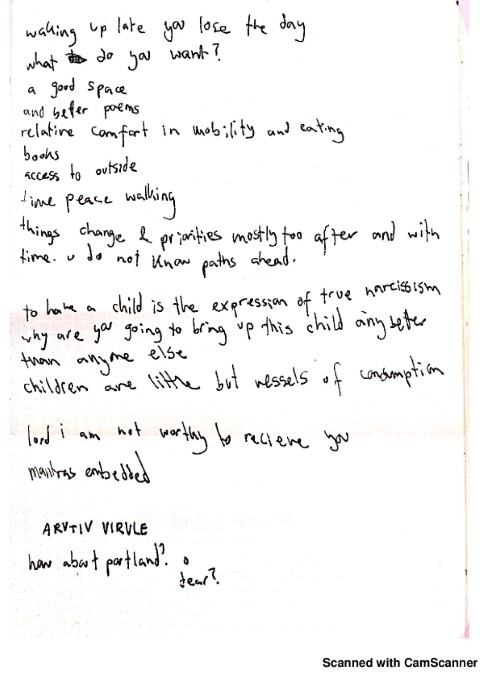 waking up late you lose the day
what do you want?
a good space
and better poems
relative comfort in mobility and eating
books
access to outside
time peace walking
things change & priorities mostly too after and with
time. u do not know paths ahead.
to have a child is the expression of true narcissism
why are you going to bring up this child any better
than anyone else
children are little but vessels of consumption
lord i am not worthy to recieve you
mantras embedded
ARVTIV VIRVLE
how about portland? o
dear?
Scanned with CamScanner